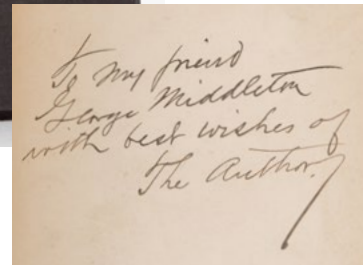 To my friend
George Middleton
with best wishes of
The Author.